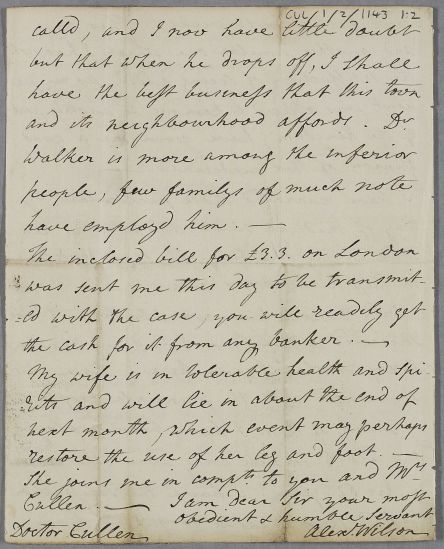 CUL/1/2/1143 1-2
calld, and I now have little doubt
but that when he drops off, I shall
have the best business that this town
and its neighbourhood affords. Dr
Walker is more among the inferior
people, few familys of much note
have employd him. —
The inclosed bill for £3.3. on London
was sent me this day to be transmit-
=ed with the case, you will readily get
the cash for it from any banker. —
My wife is in tolerable health and spi-
rits and will lie in about the end of
next month, which event may perhaps
restore the use of her leg and foot. —
She joins me in compts to you and Mrs
Cullen. — I am Dear Sir your most
obedient & humble Servant
Doctor Cullen Alexr Wilson